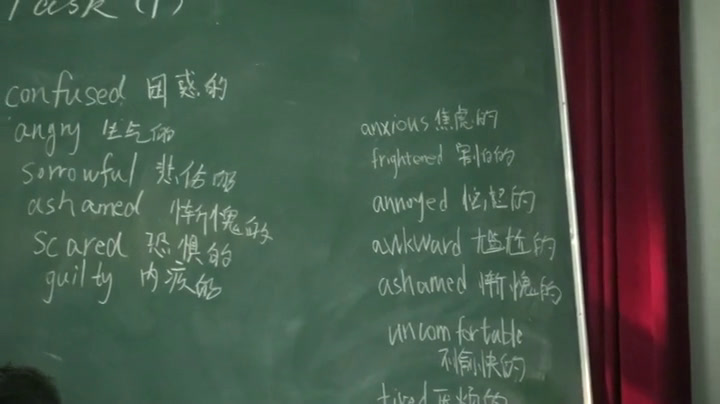 Task (1)
confused 困惑的
angry 生气的
sorrowful 悲伤的
ashamed 惭愧的
scared 恐惧的
guilty 内疚的
anxious 焦虑的
frightened 害怕的
annoyed 恼怒的
awkward 尴尬的
ashamed 惭愧的
uncomfortable
不愉快的
tired 厌烦的